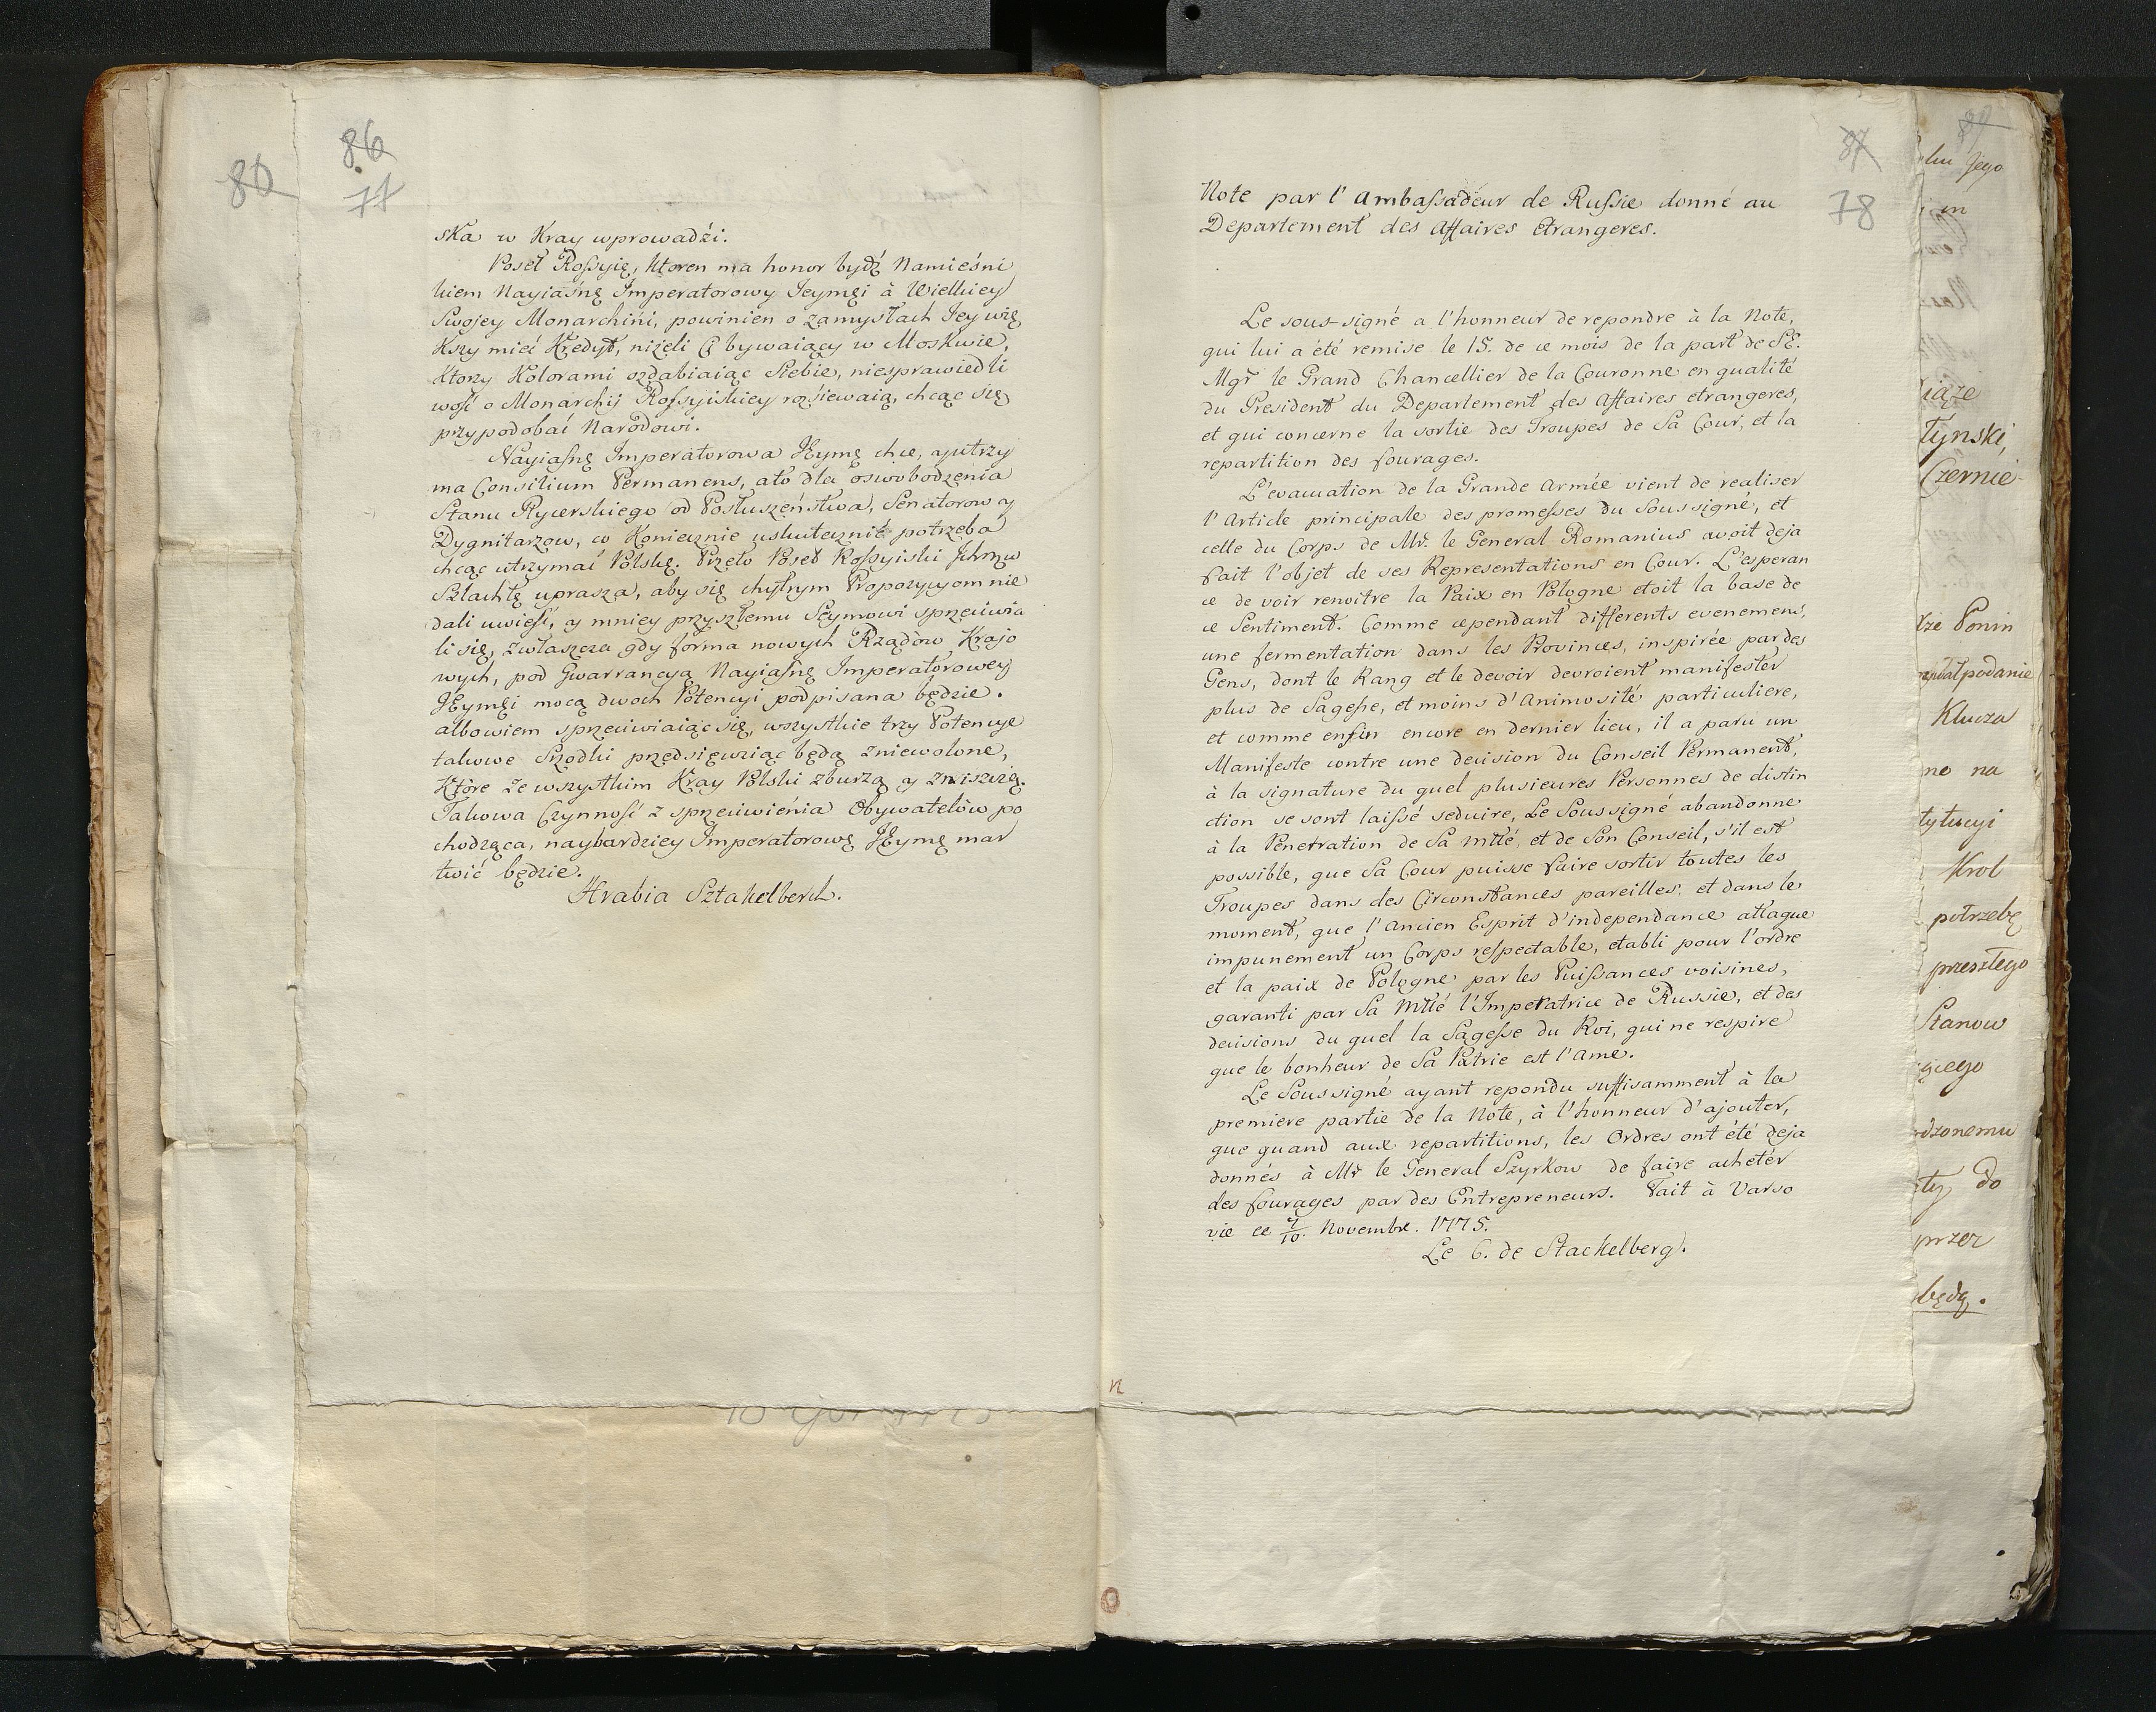 80
86
77
ska w Kray wprowadźi.
Poseł Rossyię, ktoren ma honor bydź Namieśni
kiem Nayiaśnę Imperatorowy Jeymęi à Wielkiey
Swojey Monarchińi, powinien o zamysłach Jey wię
kszy mieć Kredyt, niżeli Ci bywaiący w Moskwie,
Ktorzy Kolorami ozdabiaiąc Siebie, niesprawiedli
wość o Monarchij Rossyiskiey rozsiewaią, chcąc się
przypodobać Narodowi.
Nayiasnę Imperatorowa JEymę chce, aj utrzy
ma Consilium Permanens, ato dla oswobodzenia
Stanu Rycerskiego od Posłuszeństwa, Senatorow y
Dygnitarzow, co Koniecznie uskutecznić potrzeba
chcąc utrzymać Polskę. Przeto Poseł Rossyiski Ichmęw
Szlachtę uprasza, aby się chytrym Propozycyom nie
dali uwieść, y mniey przyszłemu Seymowi sprzeciwia
li się, zwłaszcza gdy forma nowych Rządow Krajo
wych, pod Gwarrancyą Nayiasnę Imperatorowey
JEymęi mocą dwoch Potencyi podpisana będzie.
albowiem sprzeciwiaiąc się, wszystkie trzy Potencye
takowe Srzodki przedsięwziąc będą zniewolone,
Ktore ze wszystkim Kray Polski zburzą y zniszczę.
Takowa Czynność z sprzeciwienia Obywatelów po
chodząca, naybardziey Imperatorowę JEymę mar
twić będzie.
Hrabia Sztakelberch.
87
78
Note par l'Ambassadeur de Russie donné au
Departement des Affaires Etrangeres.
Le sous-signé a l'honneur de repondre à la Note,
qui lui a été remise le 15. de ce mois de la part de S.E.
Mgr le Grand Chancellier de la Couronne en qualité
du President du Departement des Affaires etrangeres,
et qui concerne la sortie des Troupes de Sa Cour, et la
repartition des fourages.
L'evacuation de la Grande Armée vient de realiser
l'Article principale des promesses du Soussigné, et
celle du Corps de Mr. le General Romanius avoit deja
fait l'objet de ses Representations en Cour. L'esperan
ce de voir renoitre la Paix en Pologne etoit la base de
ce Sentiment. Comme cependant differents evenemens,
une fermentation dans les Provinces, inspirée par des
Gens, dont le Rang et le devoir devroient manifester
plus de Sagesse, et moins d'Animosité particuliere,
et comme enfin encore en dernier lieu, il a paru un
Manifeste contre une decision du Conseil Permanent,
à la signature du quel plusieures Personnes de distin
ction se sont laissé seduire, Le Soussigné abandonne
à la Penetration de Sa Mtté, et de Son Conseil, s'il est
possible, que Sa Cour puisse faire sortir toutes les
Troupes dans des Circonstances pareilles, et dans le
moment, que l'Ancien Esprit d'independance attaque
impunement un Corps respectable, etabli pour l'ordre
et la paix de Pologne par les Puissances voisines,
garanti par Sa Mtté l'Imperatrice de Russie, et des
decisions du quel la Sagesse du Roi, qui ne respire
que le bonheur de Sa Patrie est l'Ame.
Le Soussigné ayant repondu suffisamment à la
premiere partie de la Note, à l'honneur d'ajouter,
que quand aux repartitions, les Ordres ont été deja
donnés à Mr le General Szyrkow de faire acheter
des fourages par des Entrepreneurs. Fait à Varso
vie ce 7/10. Novembre. 1775.
Le C. de Stackelberg.
Jego
iąże
tynski,
Czernie
Ponin
podanie
Klucza
no na
tytucyi
Krol
potrzebę
przeszłego
Stanow
dzonemu
ty do
przez
będą.